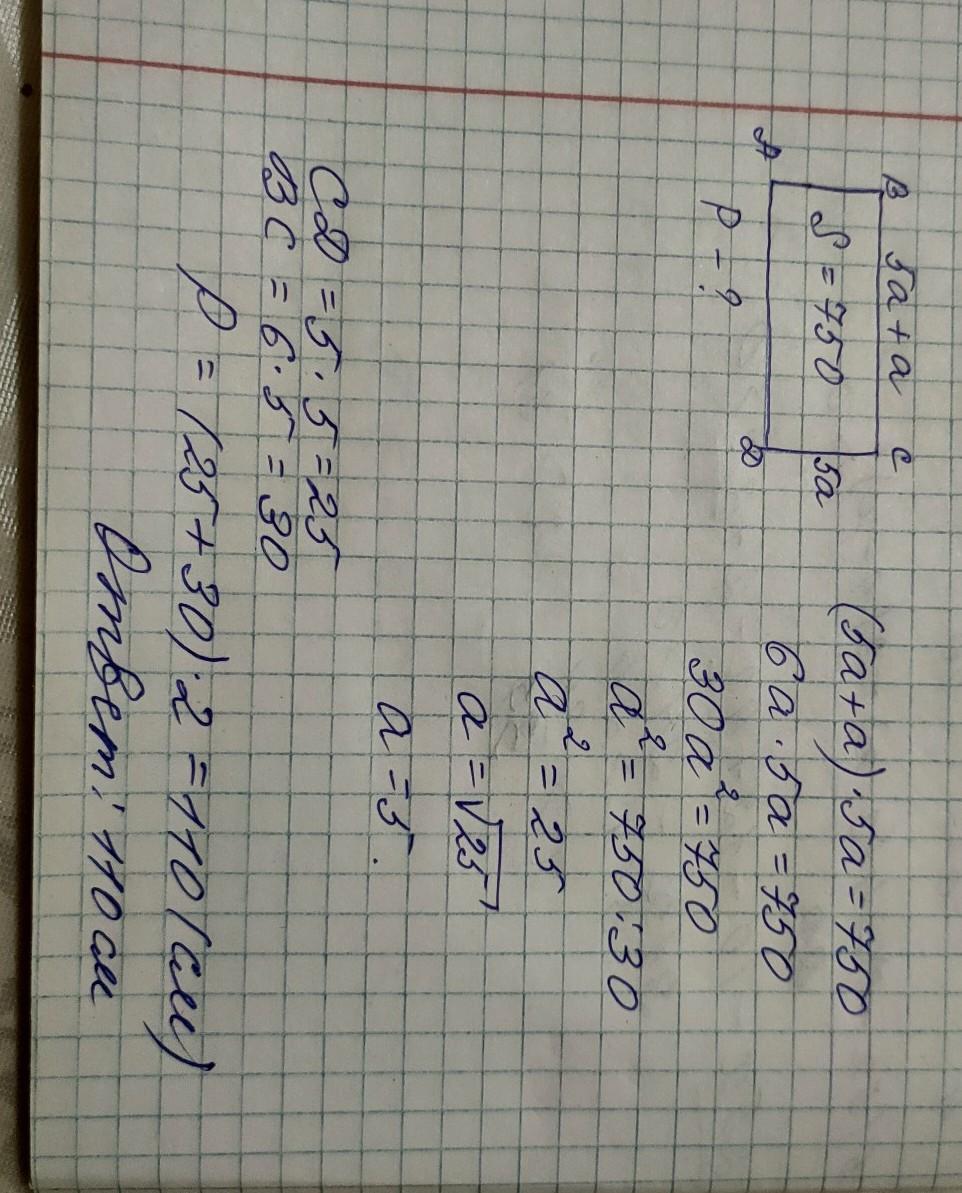 B 5a+a C
S=750
5a
A D
P-?
(5a+a)·5a=750
6a·5a=750
30a²=750
a²=750:30
a²=25
a=√25
a=5.
CD=5·5=25
BC=6·5=30
P=(25+30)·2=110(см)
Ответ: 110см